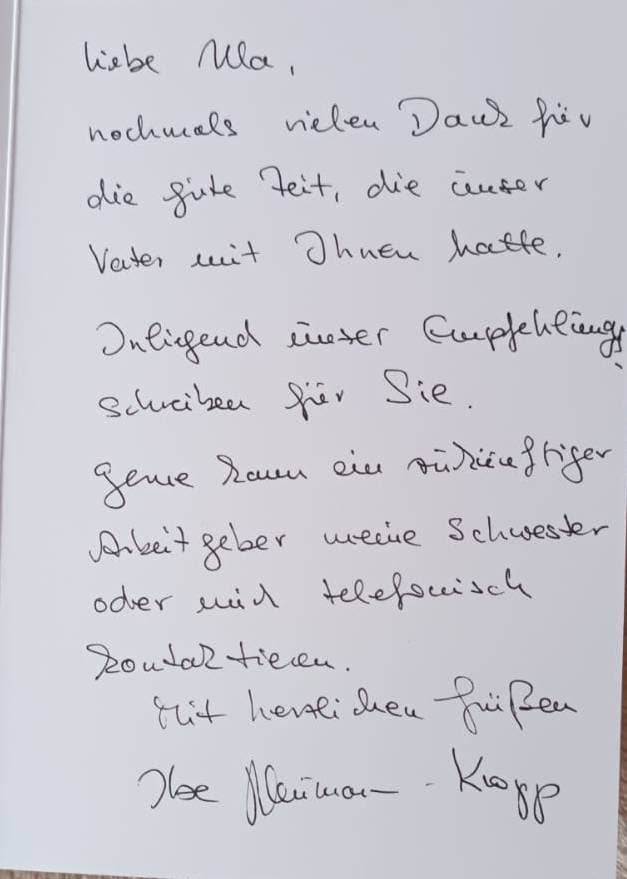 liebe Ulla,
nochmals vielen Dank für
die gute Zeit, die unser
Vater mit Ihnen hatte.
Inliegend unser Empfehlungs-
schreiben für Sie.
Gerne kann ein zukünftiger
Arbeitgeber meine Schwester
oder mich telefonisch
kontaktieren.
Mit herzlichen Grüßen
- Kropp